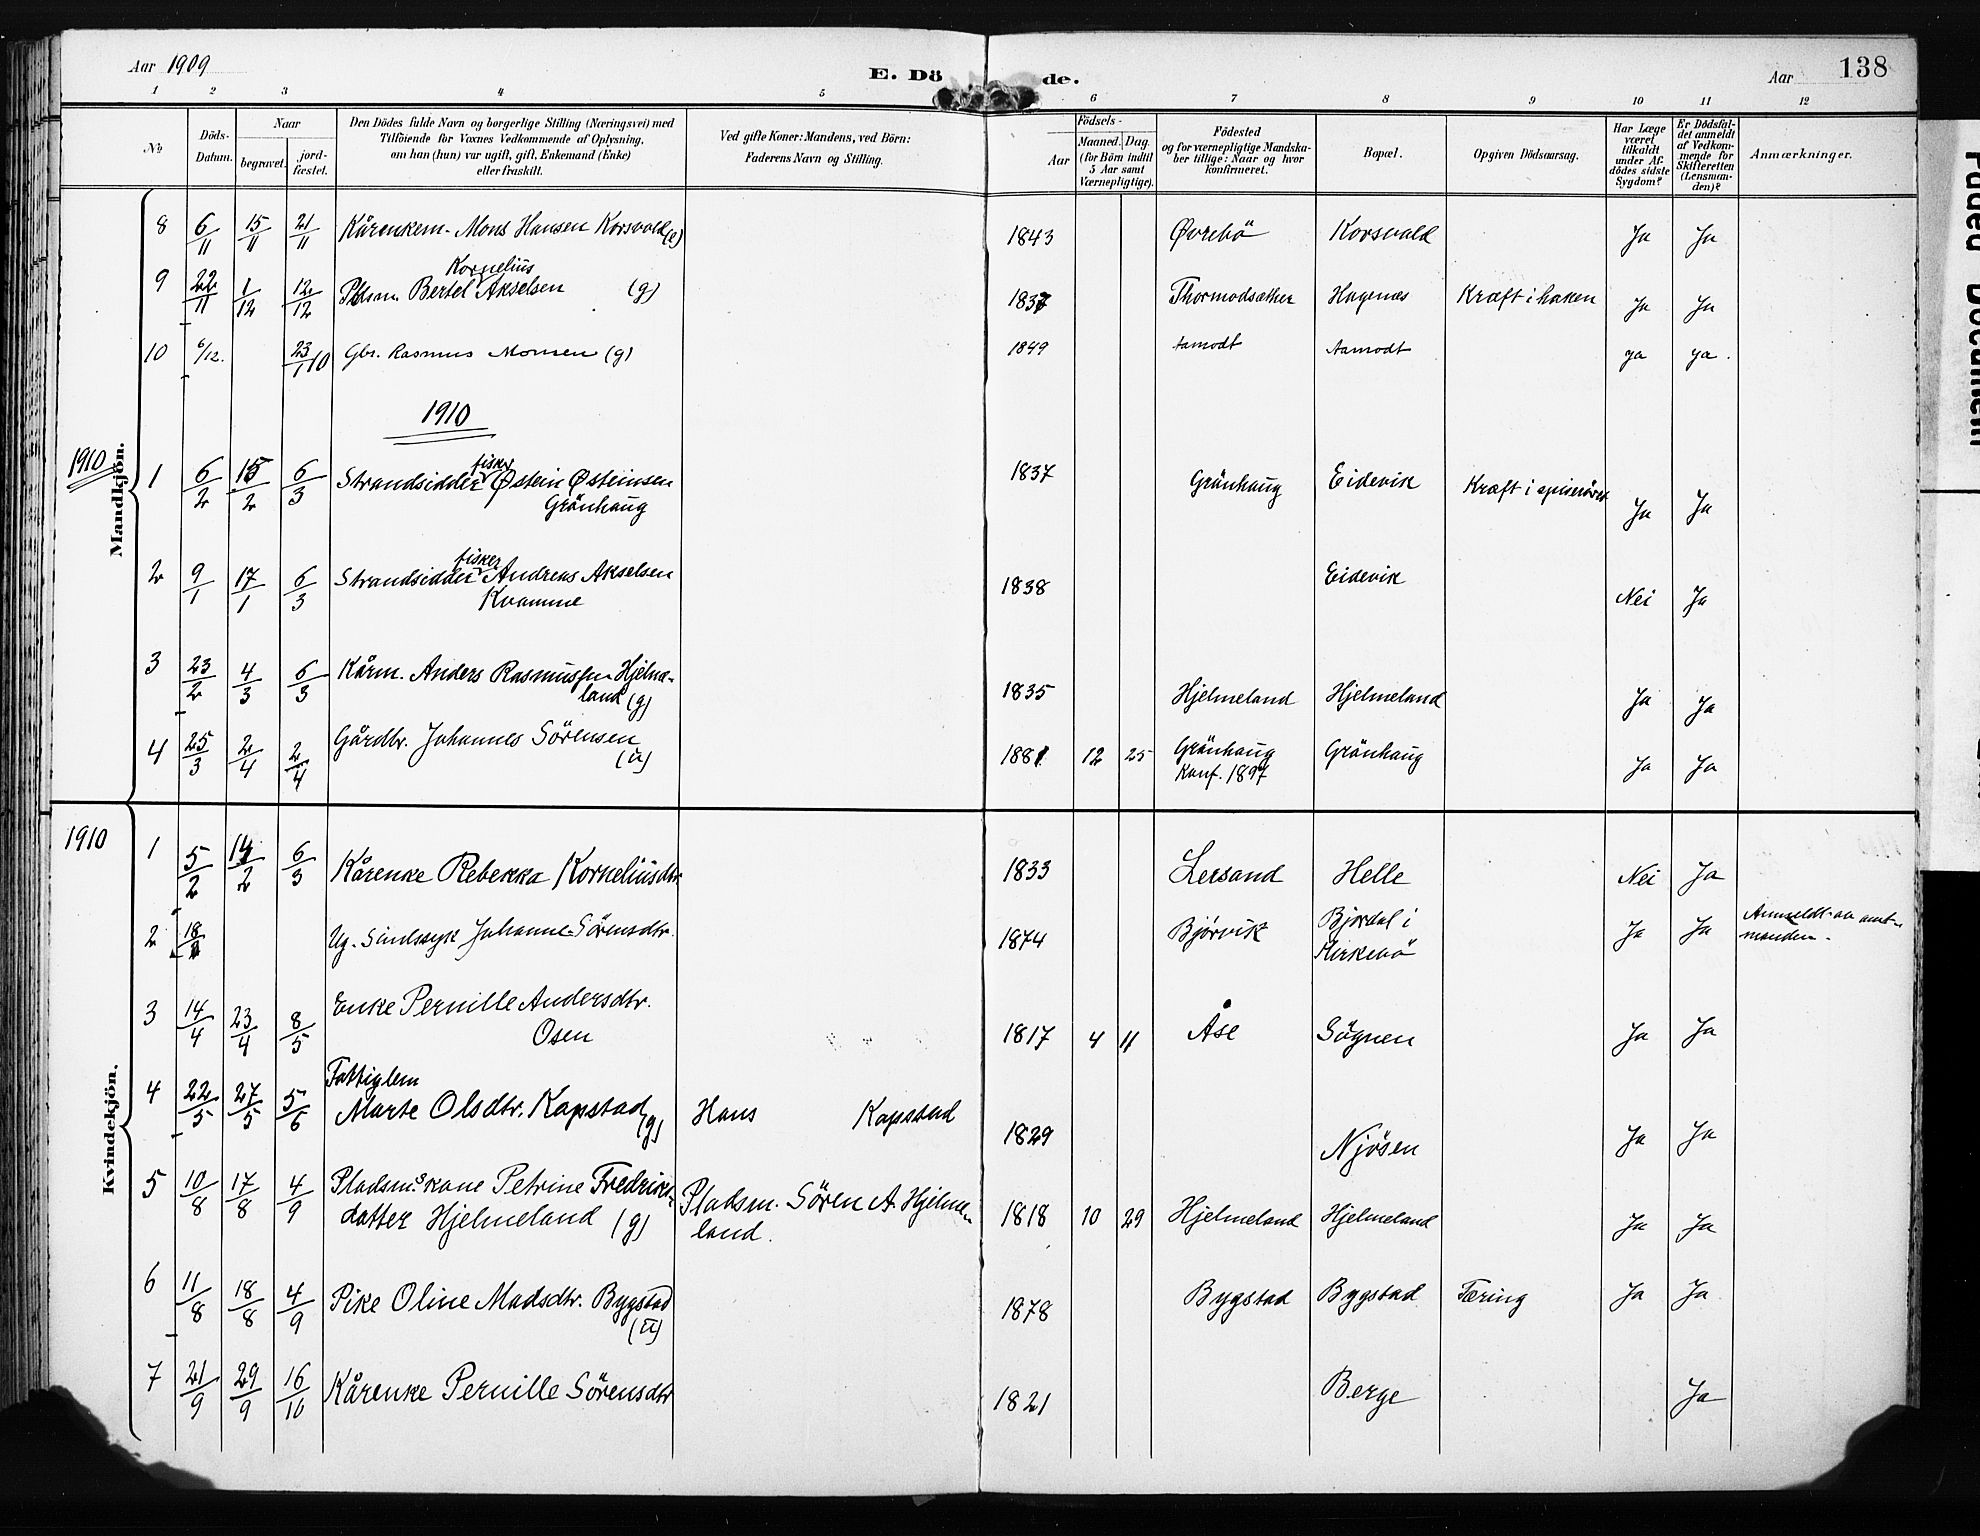 Aar 1909
E. Dö de.
Aar 138
1 2 3 4 5 6 7 8 9 10 11 12
№
Döds-Datum.
Naar
begravet.
jord-fæstet.
Den Dödes fulde Navn og borgerlige Stilling (Næringsvei) med
Tilföiende for Voxnes Vedkommende af Oplysning,
om han (hun) var ugift, gift, Enkemand (Enke)
eller fraskilt.
Ved gifte Koner: Mandens, ved Börn:
Faderens Navn og Stilling.
Födsels-
Aar
Maaned. Dag.
(for Börn indtil
5 Aar samt
Værnepligtige).
Födested
og for værnepligtige Mandska-
ber tillige: Naar og hvor
konfirmeret.
Bopæl.
Opgiven Dödsaarsag.
Har Læge
været
tilkaldt
under Af-
dödes sidste
Sygdom?
Er Dödsfal-
det anmeldt
af Vedkom-
mende for
Skifteretten
(Lensman-
den)?
Anmærkninger.
Mandkjön.
8 6/11 15/11 21/11 Kårenkem. Mons Hansen Korsvold (e) 1843 Øvrebö Korsvold Ja Ja
Kornelius
9 22/11 1/12 12/12 Plsm. Bertel Akselsen (g) 1837 Thormodsæther Hagenæs Kræft i haken Ja Ja
10 6/12. 23/1 10 Gbr. Rasmus Monsen (g) 1849 Aamodt Aamodt ja ja.
1910
1910
fisker
1 6/2 15/2 6/3 Strandsidder Østein Østeinsen 1837 Grönhaug Eidevik Kræft i spiseröret Ja Ja
Grönhaug
fisker
2 9/1 17/1 6/3 Strandsidder Andreas Akselsen 1838 Eidevik Nei Ja
Kvamme
3 23/2 4/3 6/3 Kårm. Anders Rasmussen Hjelme-
land (g) 1835 Hjelmeland Hjelmeland Ja Ja
4 25/3 2/4 2/4 Gårdbr. Johannes Sörensen
(u) 1881 12 25 Grönhaug Grönhaug Ja Ja
Konf. 1897
1910
Kvindekjön.
1 5/2 14/2 6/3 Kårenke Rebekka Korneliusdtr 1833 Lersand Helle Nei Ja
2 18/ Ug. Sindssyk Johanne Sörensdtr. 1874 Bjørvik Bjordal i Ja Ja Anmeldt av amt-
Kirkevö manden.
3 14/4 23/4 8/5 Enke Pernille Andersdtr.
Osen 1817 4 11 Åse Sögnen Ja Ja
Fattiglem
4 22/5 27/5 5/6 Marte Olsdtr. Kapstad (g) Hans Kapstad 1829 Njösen Ja Ja
5 10/8 17/8 4/9 Pladsm.s kone Petrine Fredriks- Pladsm. Sören A. Hjelme-
datter Hjelmeland (g) land. 1818 10 29 Hjelmeland Hjelmeland Ja Ja
6 11/8 18/8 4/9 Pike Oline Madsdtr. Bygstad 1878 Bygstad Bygstad Tæring Ja Ja
(u)
7 21/9 29/9 16/10 Kårenke Pernille Sörensdtr 1821 Berge Ja